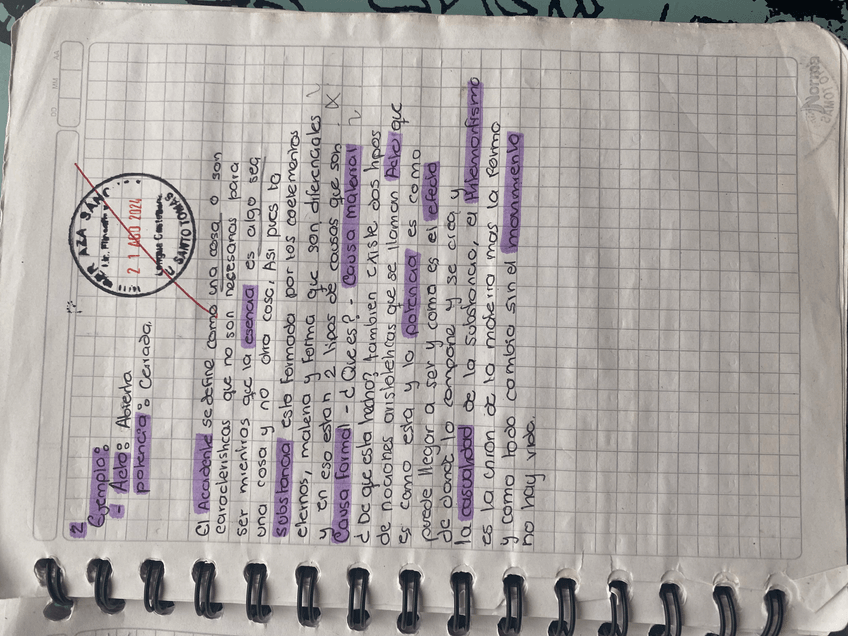 2
Ejemplo:
- Acto: Abierta
potencia: Cerrada.
21 AGO 2024
Lengua Castellana
SANTO TOMAS
El Accidente se define como una cosa o son
caracteristicas que no son necesarias para
ser mientras que la esencia es algo sea
una cosa y no otra cosa. Asi pues la
substancia esta formada por los coelementos
eternos, materia y forma que son diferenciales
y en eso estan 2 tipos de causas que son.
Causa Formal - ¿Que es? - Causa material
¿De que esta hecho? tambien existe dos tipos
de nociones aristotelicas que se llaman Acto que
es como esta y la potencia es como
puede llegar a ser y como es el efecto
de donde lo compone y se crea y
la casualidad de la substancia, el hilemorfismo
es la union de la materia mas la forma
y como todo cambia sin el movimiento
no hay vida.
Norma